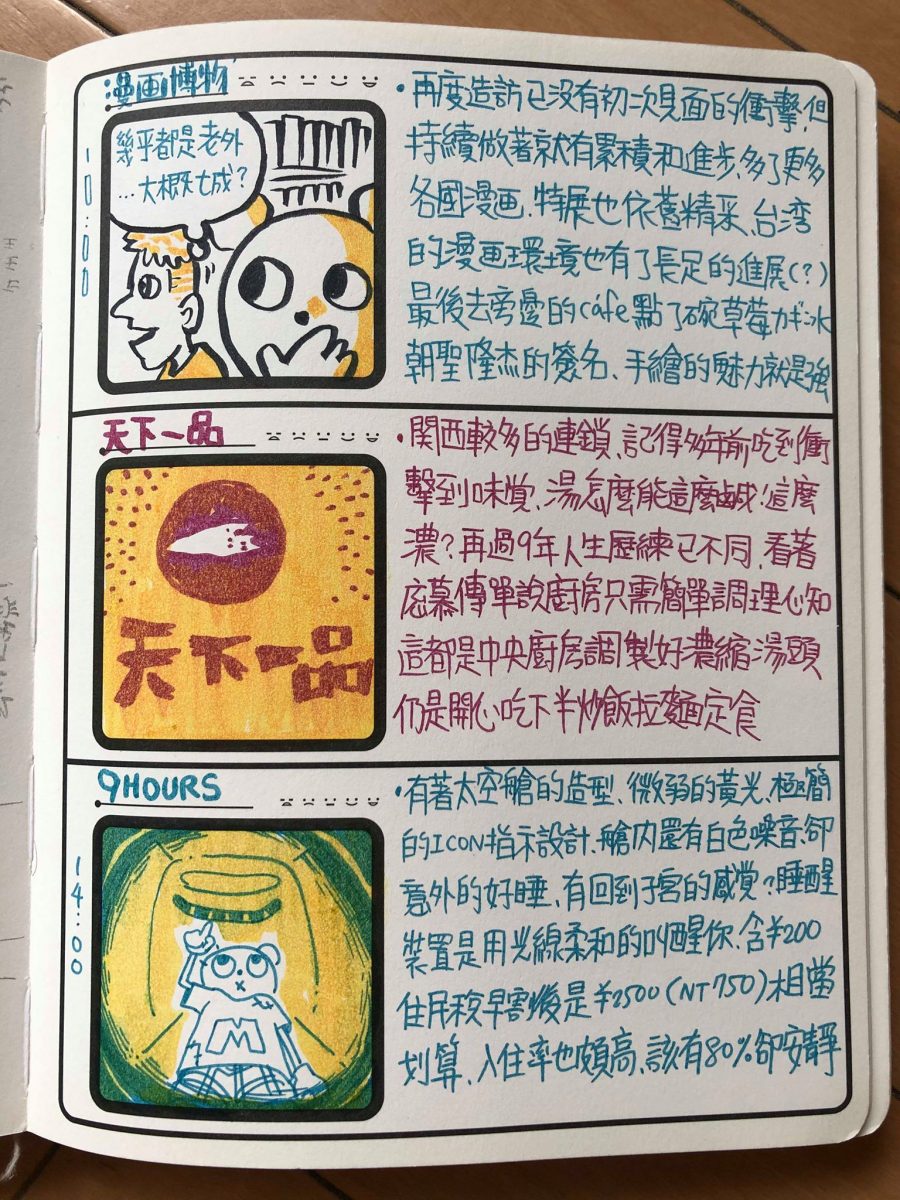 漫画博物
10:00
幾乎都是老外
…大概七成?
・再度造訪已沒有初次見面的衝擊,但
持續做著就有累積和進步、多了更多
各國漫画、特展也依舊精采、台湾
的漫画環境也有了長足的進展(?)
最後去旁邊的café點了碗草莓カギ氷
朝聖隆杰的簽名、手繪的魅力就是強
天下一品
天下一品
・関西較多的連鎖、記得多年前吃到衝
擊到味覚、湯怎麼能這麼鹹!這麼
濃?再過9年人生歷練已不同、看著
応募傳單說廚房只需簡單調理心知
這都是中央廚房調製好濃縮湯頭
仍是開心吃下半炒飯拉麵定食
9HOURS
14:00
M
・有著太空艙的造型、微弱的黃光、極簡
的ICON指示設計、艙内還有白色噪音、卻
意外的好睡、有回到子宮的感覚?睡醒
裝置是用光線柔和的叫醒你、含¥200
住民稅早割後是¥2500(NT750)相當
划算、入住率也頗高、該有80%卻安靜